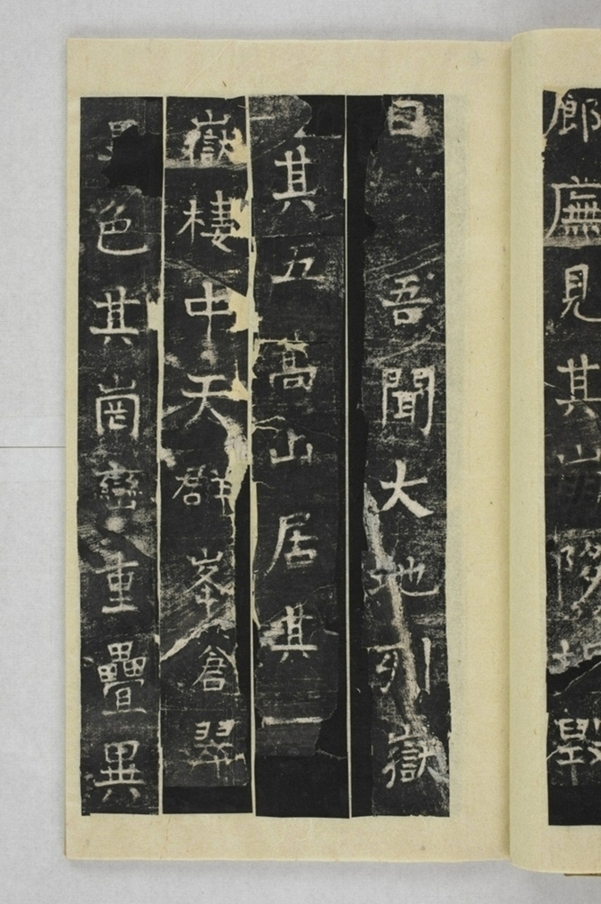 郎廡見其崩隊圮毀
曰吾聞大地列嶽
其五嵩山居其一
嶽棲中天群峯倉翠
色其崗巒重疊異